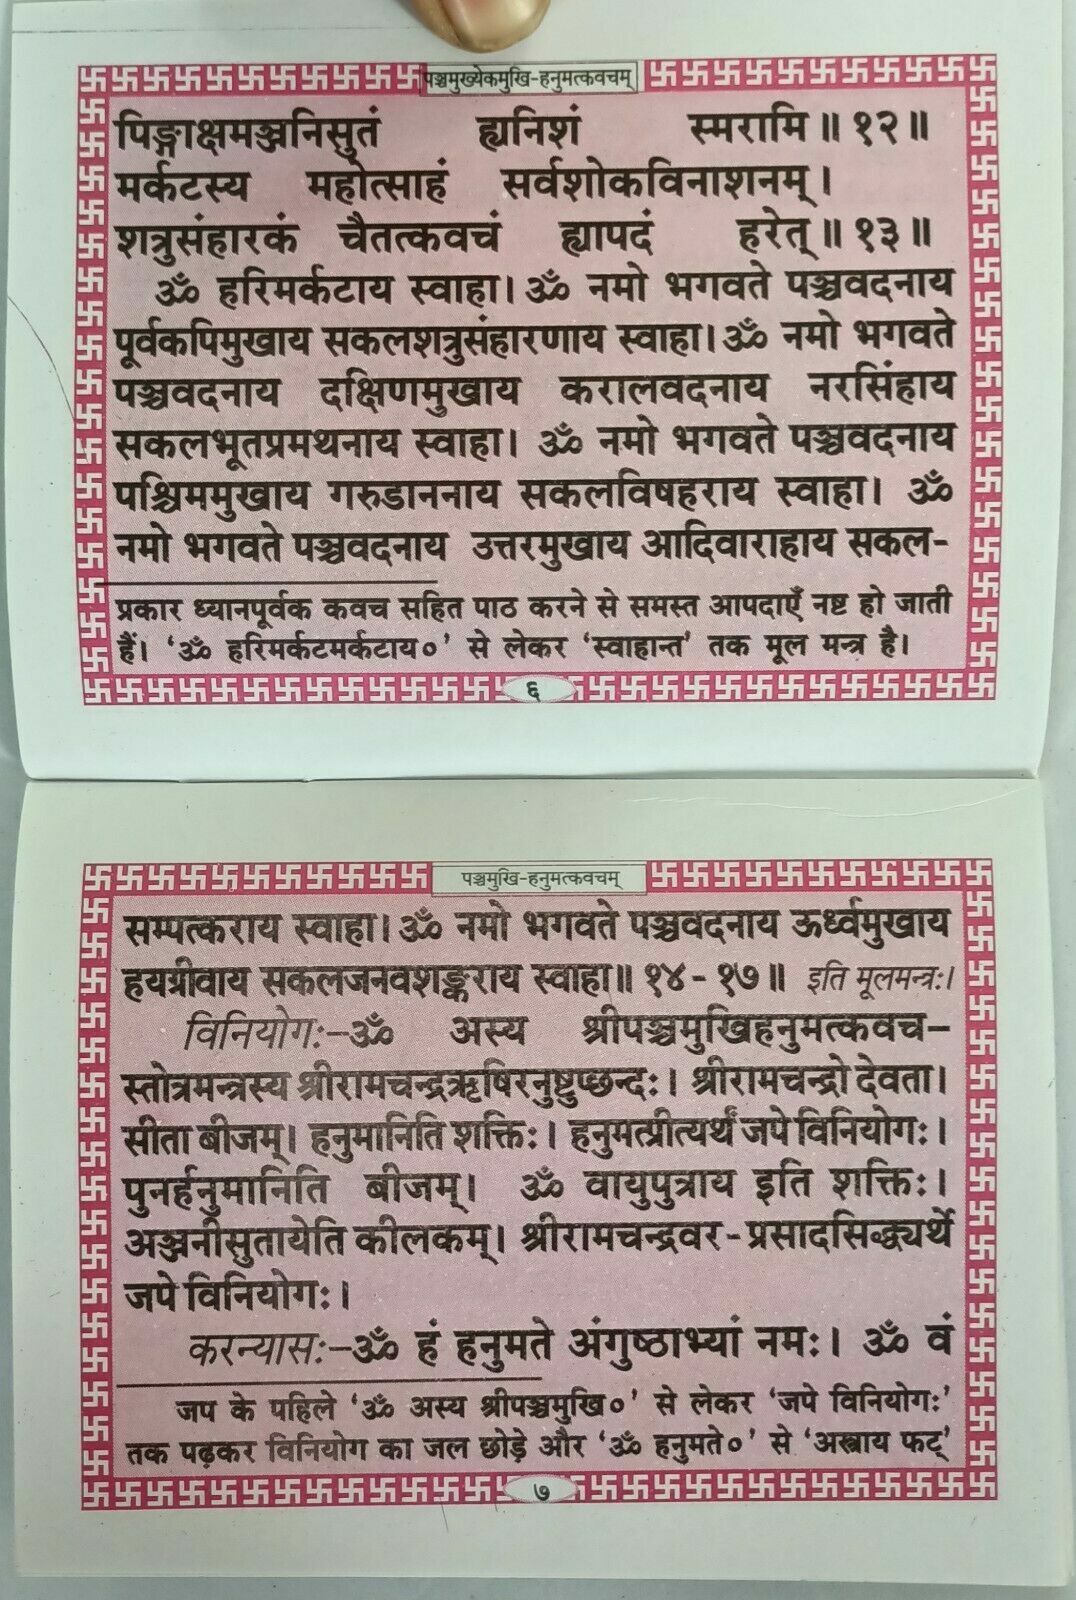 पञ्चमुख्येकमुखि-हनुमत्कवचम्
पिङ्गाक्षमञ्जनिसुतं ह्यनिशं स्मरामि॥ १२॥
मर्कटस्य महोत्साहं सर्वशोकविनाशनम्।
शत्रुसंहारकं चैतत्कवचं ह्यापदं हरेत्॥ १३॥
ॐ हरिमर्कटाय स्वाहा। ॐ नमो भगवते पञ्चवदनाय
पूर्वकपिमुखाय सकलशत्रुसंहारणाय स्वाहा। ॐ नमो भगवते
पञ्चवदनाय दक्षिणमुखाय करालवदनाय नरसिंहाय
सकलभूतप्रमथनाय स्वाहा। ॐ नमो भगवते पञ्चवदनाय
पश्चिममुखाय गरुडाननाय सकलविषहराय स्वाहा। ॐ
नमो भगवते पञ्चवदनाय उत्तरमुखाय आदिवाराहाय सकल-
प्रकार ध्यानपूर्वक कवच सहित पाठ करने से समस्त आपदाएँ नष्ट हो जाती
हैं। ‘ॐ हरिमर्कटमर्कटाय०’ से लेकर ‘स्वाहान्त’ तक मूल मन्त्र है।
६
पञ्चमुखि-हनुमत्कवचम्
सम्पत्कराय स्वाहा। ॐ नमो भगवते पञ्चवदनाय ऊर्ध्वमुखाय
हयग्रीवाय सकलजनवशङ्कराय स्वाहा॥ १४-१७॥ इति मूलमन्त्रः।
विनियोगः-ॐ अस्य श्रीपञ्चमुखिहनुमत्कवच-
स्तोत्रमन्त्रस्य श्रीरामचन्द्रऋषिरनुष्टुप्छन्दः। श्रीरामचन्द्रो देवता।
सीता बीजम्। हनुमानिति शक्तिः। हनुमत्प्रीत्यर्थं जपे विनियोगः।
पुनर्हनुमानिति बीजम्। ॐ वायुपुत्राय इति शक्तिः।
अञ्जनीसुतायेति कीलकम्। श्रीरामचन्द्रवर-प्रसादसिद्ध्यर्थे
जपे विनियोगः।
करन्यासः-ॐ हं हनुमते अंगुष्ठाभ्यां नमः। ॐ वं
जप के पहिले ‘ॐ अस्य श्रीपञ्चमुखि०’ से लेकर ‘जपे विनियोगः’
तक पढ़कर विनियोग का जल छोड़े और ‘ॐ हनुमते०’ से ‘अस्त्राय फट्’
७